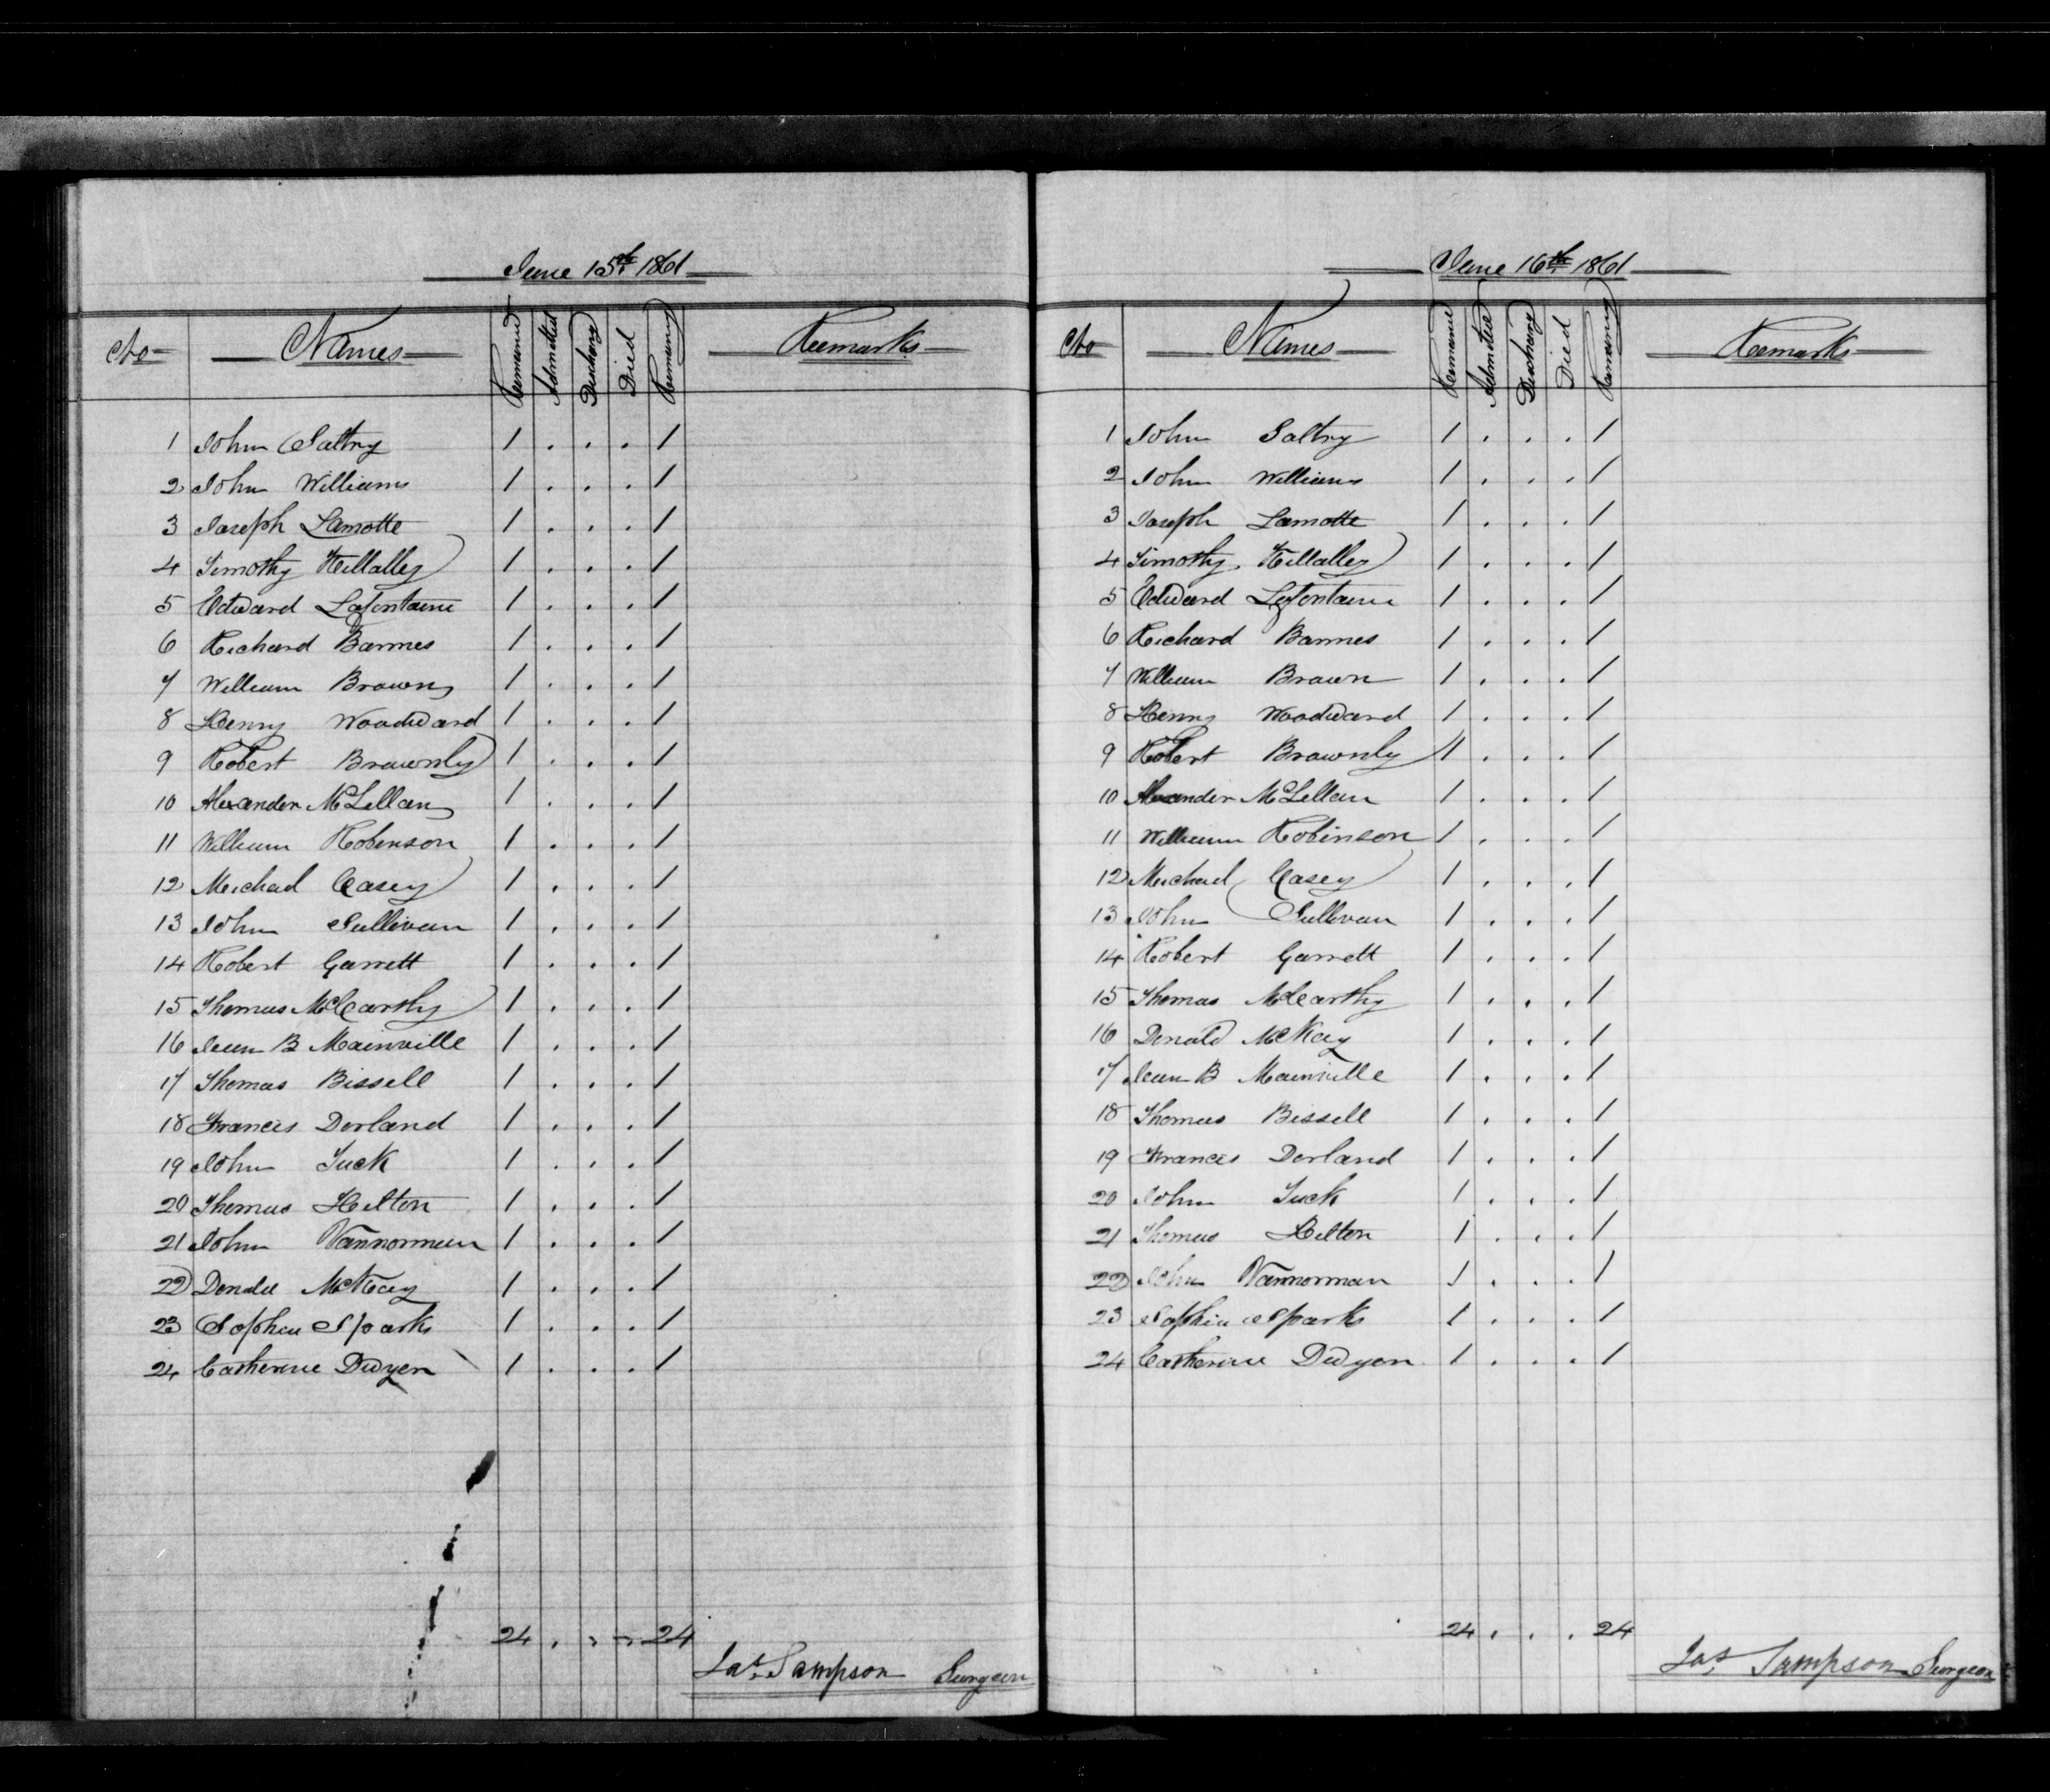 June 15th 1861
No Names Remained Admitted Discharg Died Remaining Remarks
1 John Saltry 1 . . . 1
2 John Williams 1 . . . 1
3 Joseph Lamotte 1 . . . 1
4 Timothy Killalley 1 . . . 1
5 Edward Lafontaine 1 . . . 1
6 Richard Barnes 1 . . . 1
7 William Brown 1 . . . 1
8 Henry Woodward 1 . . . 1
9 Robert Brownly 1 . . . 1
10 Alexander McLellan 1 . . . 1
11 William Robinson 1 . . . 1
12 Michael Casey 1 . . . 1
13 John Sullivan 1 . . . 1
14 Robert Garrett 1 . . . 1
15 Thomas McCarthy 1 . . . 1
16 Jean B Mainville 1 . . . 1
17 Thomas Bissell 1 . . . 1
18 Francis Dorland 1 . . . 1
19 John Tuck 1 . . . 1
20 Thomas Hilton 1 . . . 1
21 John Vannorman 1 . . . 1
22 Donald McKay 1 . . . 1
23 Sophia Sparks 1 . . . 1
24 Catherine Dwyer 1 . . . 1
24 . . . 24
Jas. Sampson Surgeon
June 16th 1861
No Names Remained Admitted Discharg Died Remaining Remarks
1 John Saltry 1 . . . 1
2 John Williams 1 . . . 1
3 Joseph Lamotte 1 . . . 1
4 Timothy Killalley 1 . . . 1
5 Edward Lafontaine 1 . . . 1
6 Richard Barnes 1 . . . 1
7 William Brown 1 . . . 1
8 Henry Woodward 1 . . . 1
9 Robert Brownly 1 . . . 1
10 Alexander McLellan 1 . . . 1
11 William Robinson 1 . . . 1
12 Michael Casey 1 . . . 1
13 John Sullivan 1 . . . 1
14 Robert Garrett 1 . . . 1
15 Thomas McCarthy 1 . . . 1
16 Donald McKay 1 . . . 1
17 Jean B Mainville 1 . . . 1
18 Thomas Bissell 1 . . . 1
19 Francis Dorland 1 . . . 1
20 John Tuck 1 . . . 1
21 Thomas Hilton 1 . . . 1
22 John Vannorman 1 . . . 1
23 Sophia Sparks 1 . . . 1
24 Catherine Dwyer 1 . . . 1
24 . . . 24
Jas. Sampson Surgeon